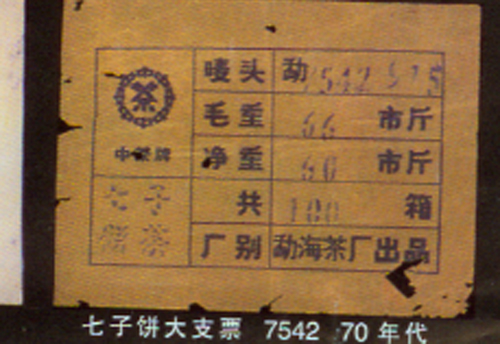 唛头 勐7542 575
毛重 66 市斤
中茶牌 净重 60 市斤
七子 共 100 箱
饼茶 厂别 勐海茶厂出品
七子饼大支票 7542 70年代